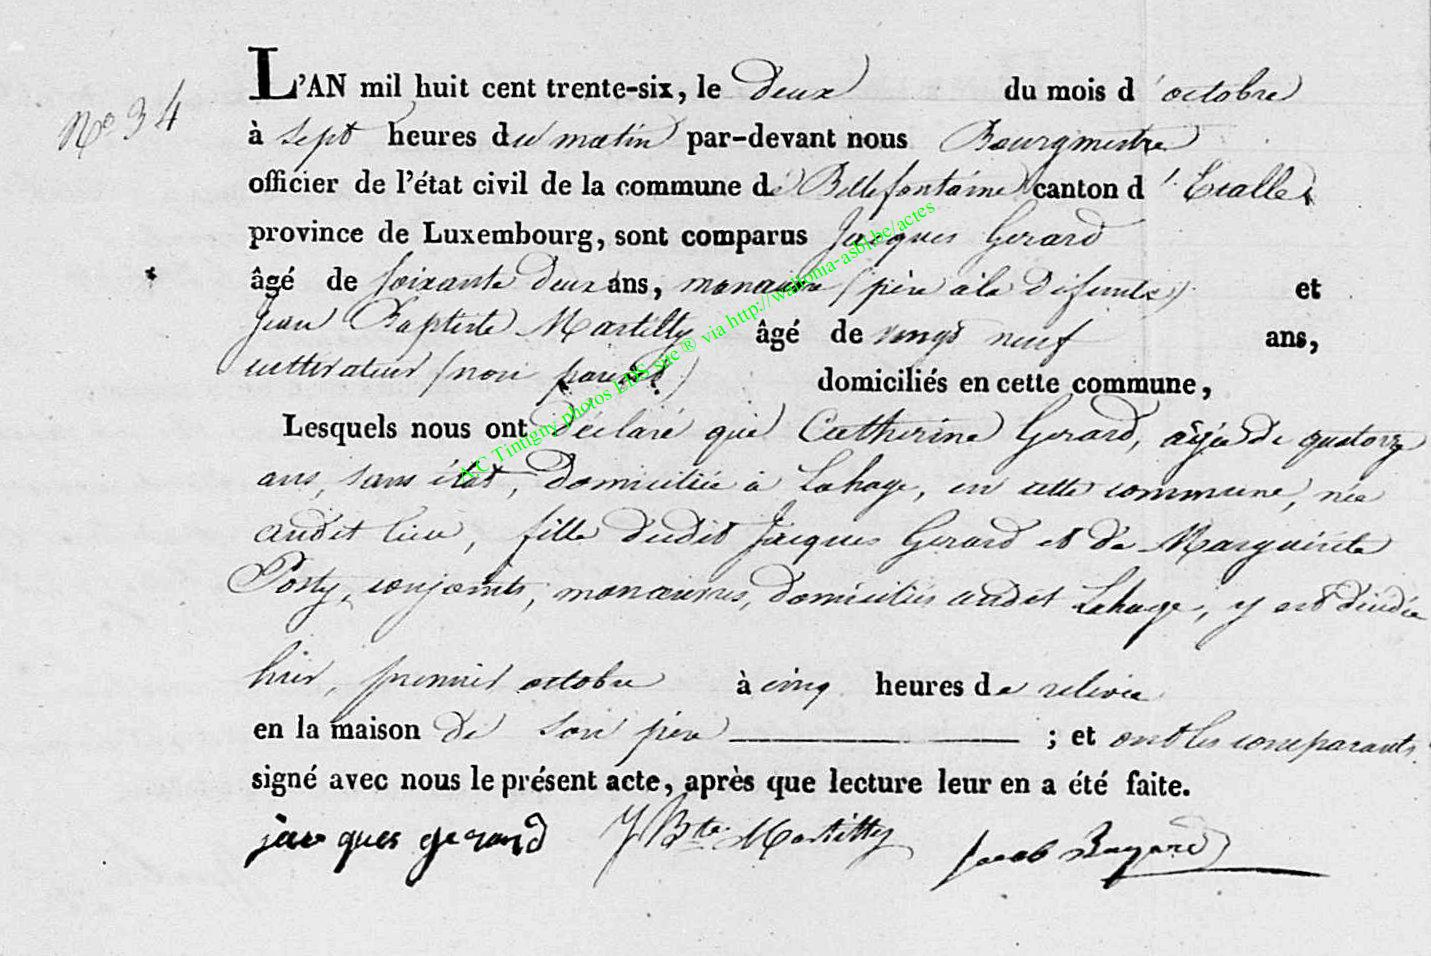 N° 34
L'AN mil huit cent trente-six, le deux du mois d'octobre
à sept heures du matin par-devant nous Bourgmestre
officier de l'état civil de la commune de Bellefontaine canton d'Etalle,
province de Luxembourg, sont comparus Jacques Gerard
âgé de soixante deux ans, manœuvre (père à la défunte) et
Jean Baptiste Martilly âgé de vingt neuf ans,
cultivateur (non parent) domiciliés en cette commune,
Lesquels nous ont déclaré que Catherine Gerard, agée de quatorze
ans, sans état, domiciliée à Lahage, en cette commune, née
audit lieu, fille dudit Jacques Gerard et de Marguerite
Posty, conjoints, manœuvres, domiciliés audit Lahage, y est décédée
hier, premier octobre à cinq heures de relevée
en la maison de son père ; et ont les comparants
signé avec nous le présent acte, après que lecture leur en a été faite.
jacques gerard J Bte Martilly Jacob Bayard
A.C Tintigny photos LDS site ® via http://wallonia-asbl.be/actes